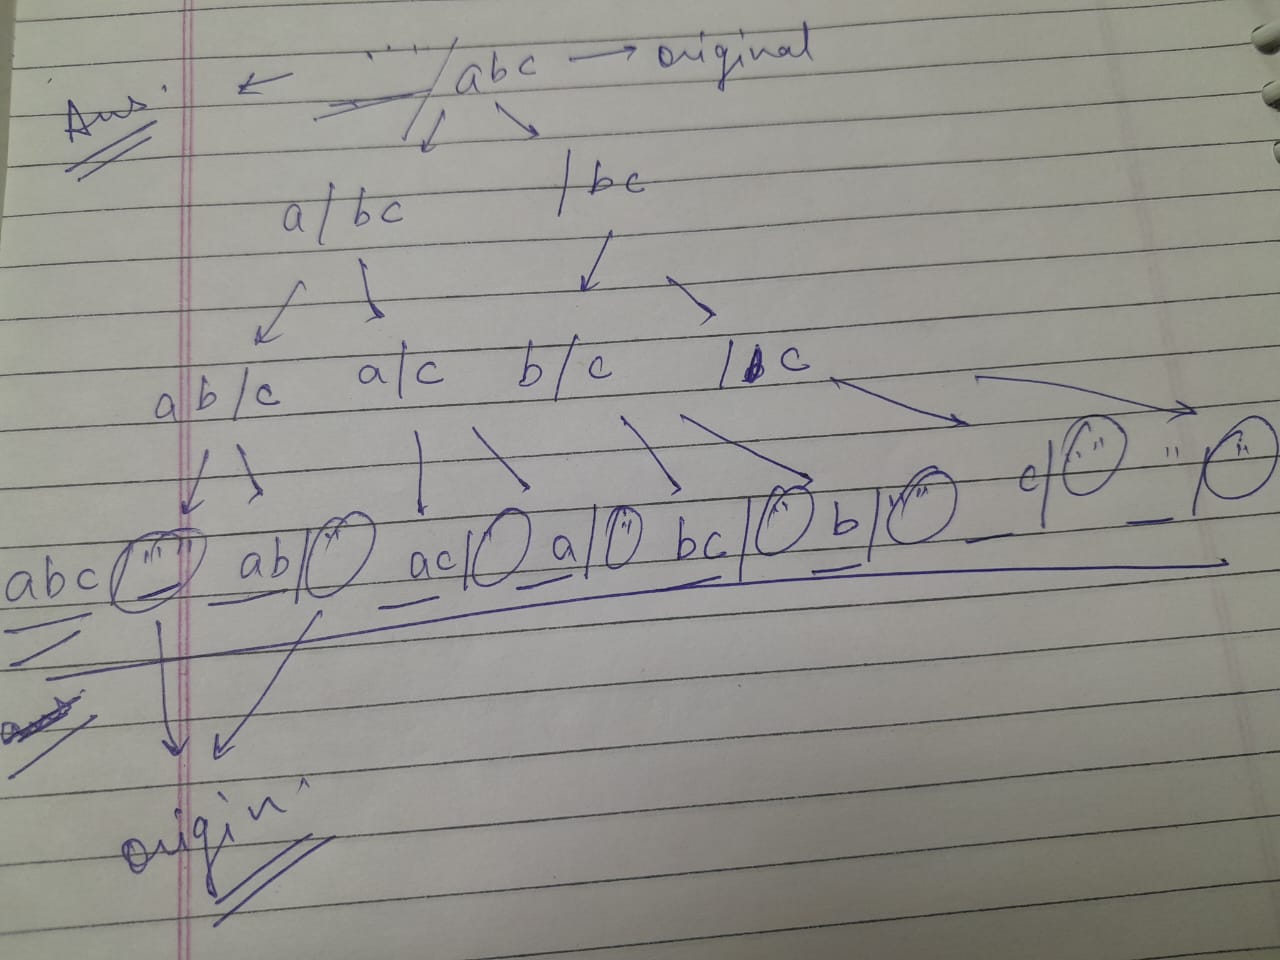 Ans. ← " " / abc → original
a / bc / bc
ab / c a / c b / c / c
abc " " ab / " " ac / a / " " bc / " " b / " " c / " " " " / " "
origin